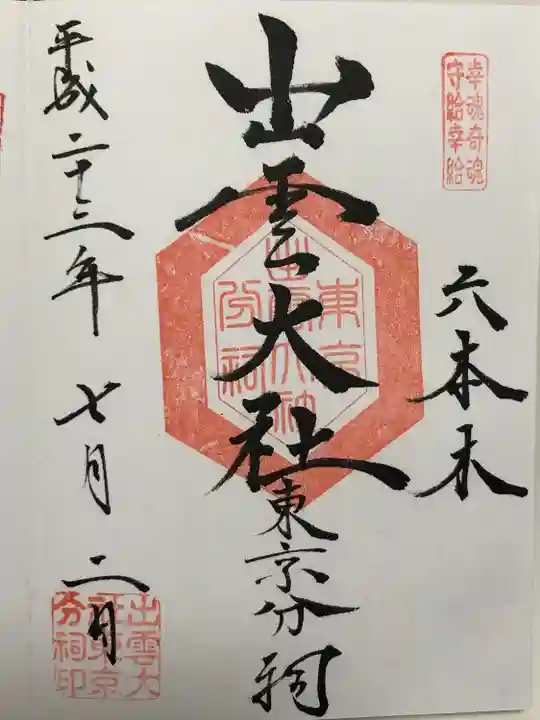 幸魂奇魂
守給幸給
六本木
出雲大社
東京分祠
東京
出雲大社
分祠
平成二十三年 七月 二日
出雲大
社東京
分祠印